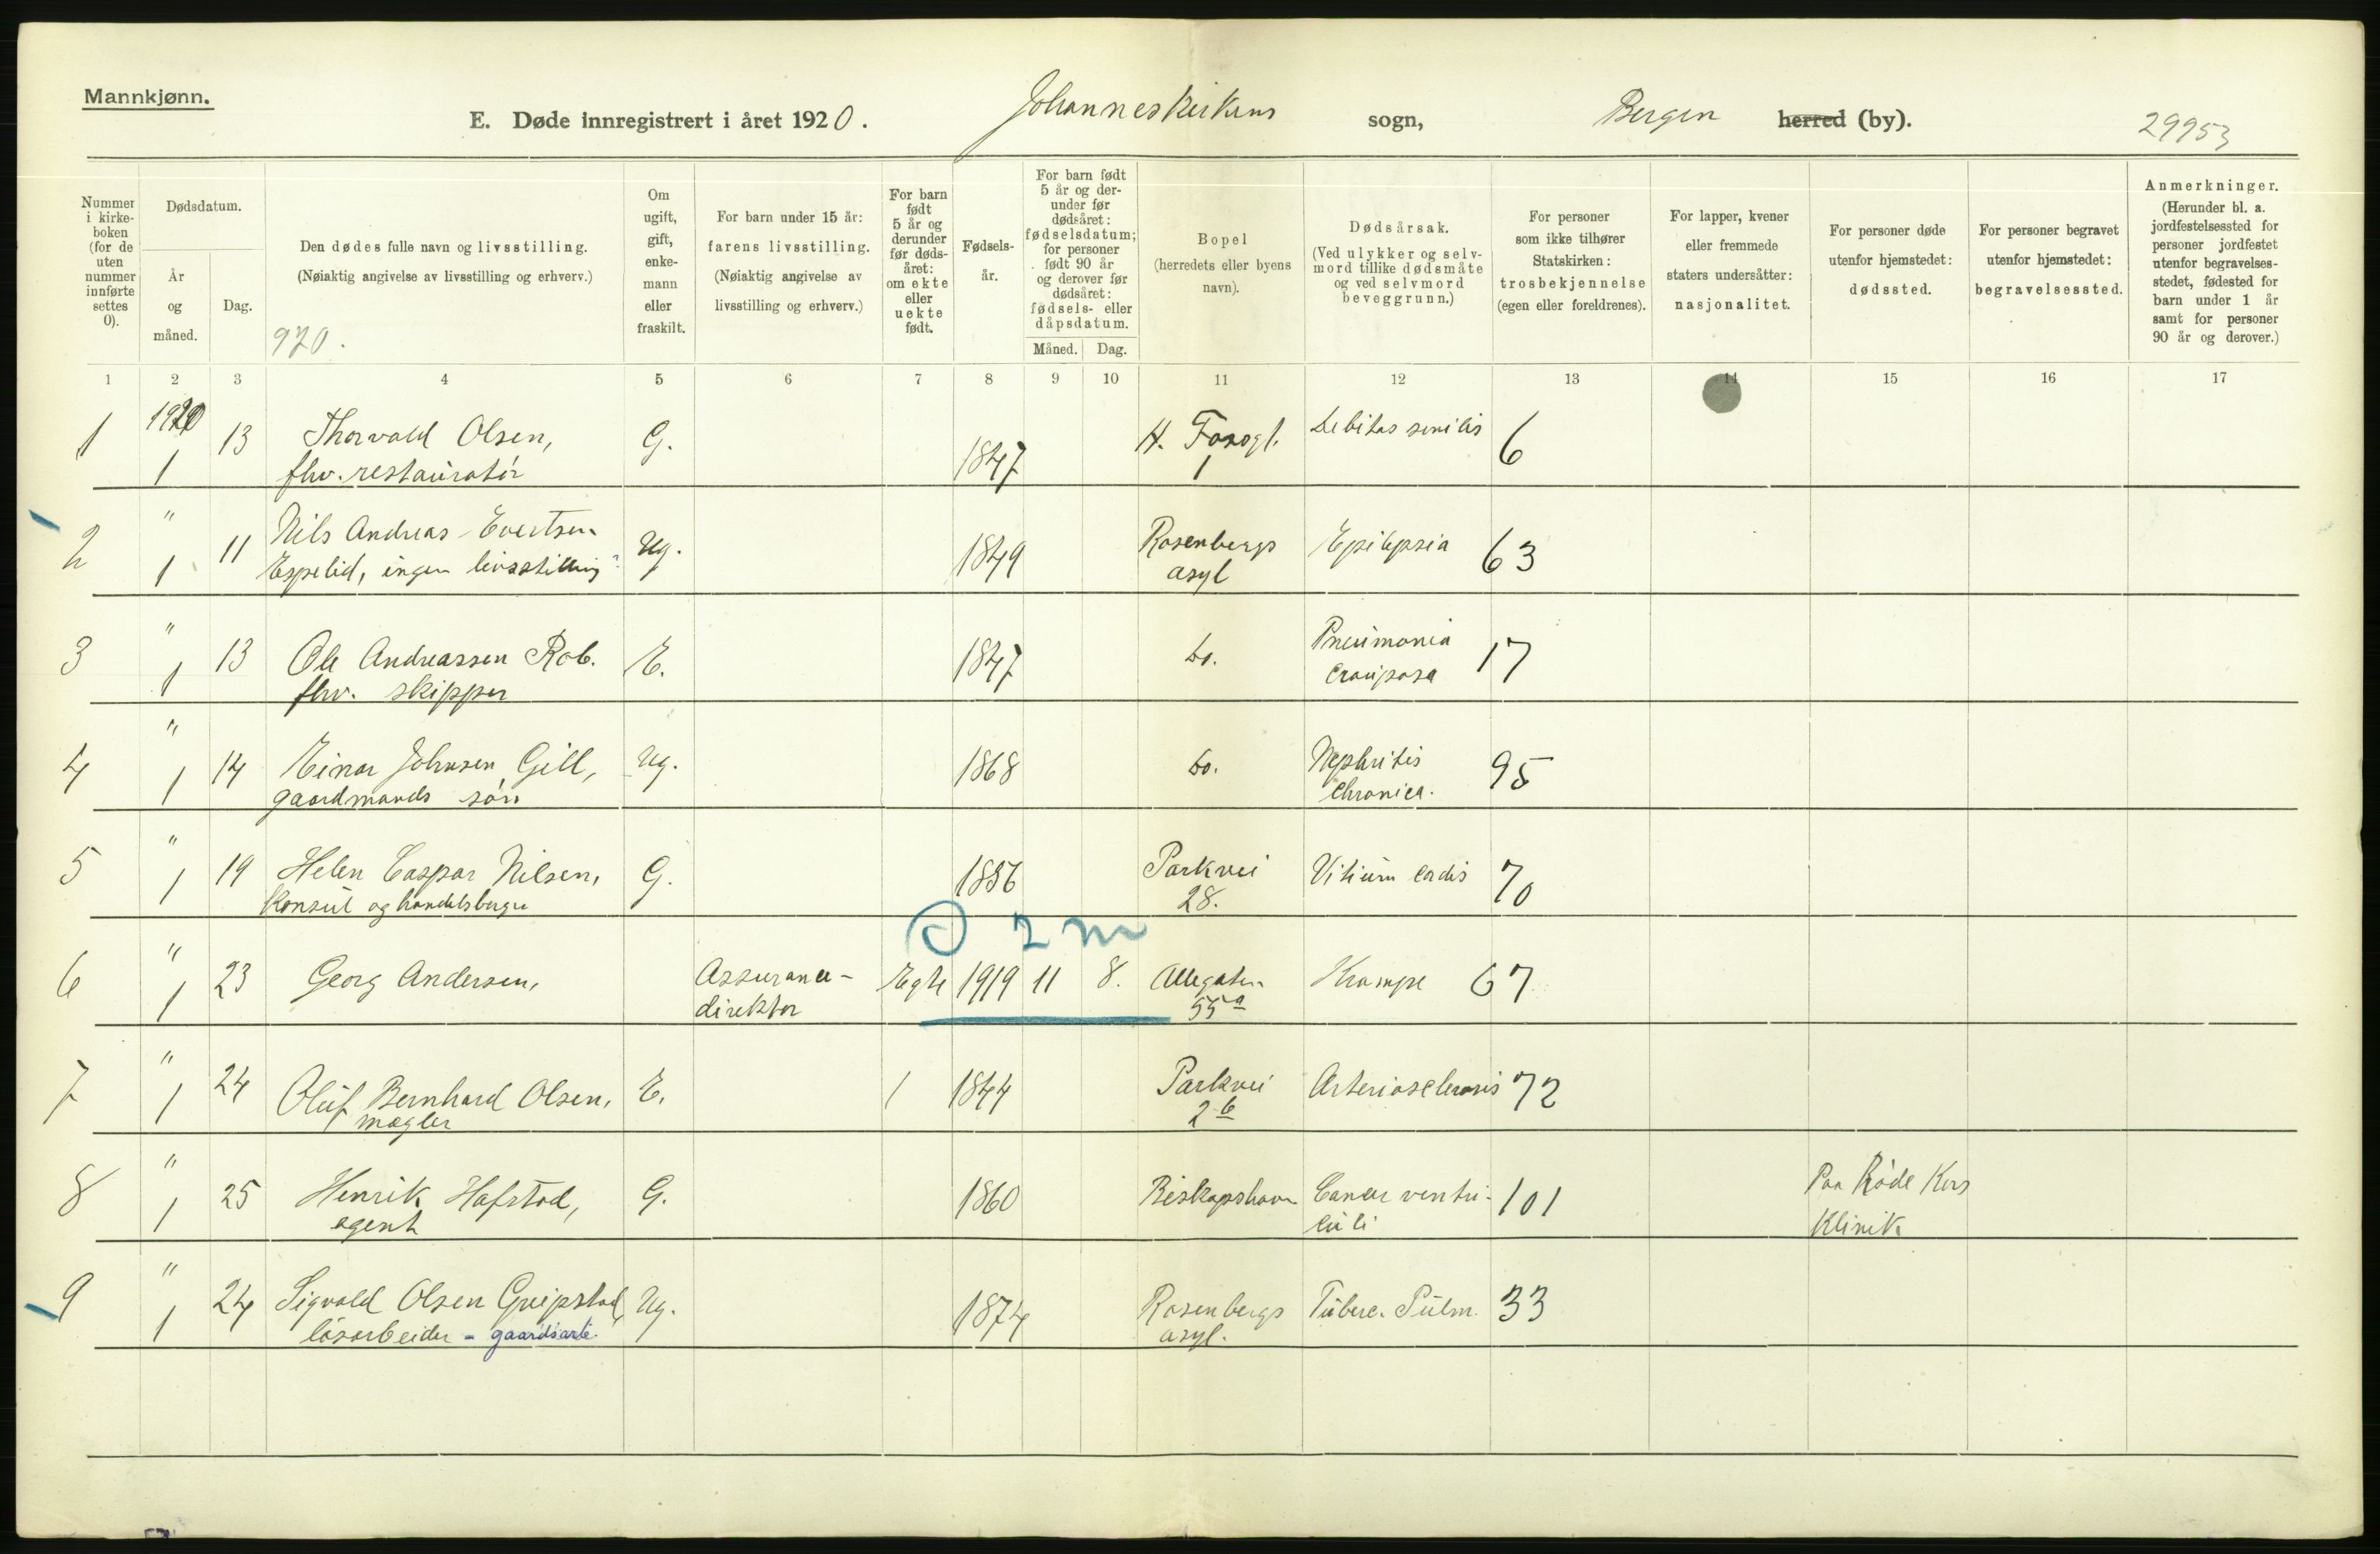 Mannkjønn.
E. Døde innregistrert i året 1920. Johanneskirkens sogn, Bergen herred (by). 29953
Nummer i kirke-boken (for de uten nummer innførte settes 0).
Dødsdatum.
År og måned.
Dag.
Den dødes fulle navn og livsstilling.
(Nøiaktig angivelse av livsstilling og erhverv.)
920.
Om ugift, gift, enke-mann eller fraskilt.
For barn under 15 år: farens livsstilling.
(Nøiaktig angivelse av livsstilling og erhverv.)
For barn født 5 år og derunder før døds-året: om ekte eller uekte født.
Fødsels-år.
For barn født 5 år og der-under før dødsåret: fødselsdatum; for personer født 90 år og derover før dødsåret: fødsels- eller dåpsdatum.
Måned. Dag.
Bopel
(herredets eller byens navn).
Dødsårsak.
(Ved ulykker og selv-mord tillike dødsmåte og ved selvmord beveggrunn.)
For personer som ikke tilhører Statskirken: trosbekjennelse (egen eller foreldrenes).
For lapper, kvener eller fremmede staters undersåtter: nasjonalitet.
For personer døde utenfor hjemstedet: dødssted.
For personer begravet utenfor hjemstedet: begravelsessted.
Anmerkninger.
(Herunder bl. a. jordfestelsessted for personer jordfestet utenfor begravelses-stedet, fødested for barn under 1 år samt for personer 90 år og derover.)
1 2 3 4 5 6 7 8 9 10 11 12 13 14 15 16 17
1 1920 1 13 Thorvald Olsen, G. 1847 H. Fosvgl. 1 Debitas senilis 6
fhv. restauratør
2 " 1 11 Nils Andreas Evertsen Ug. 1849 Rosenbergs asyl Epilepsia 63
Espelid, ingen livsstilling?
3 " 1 13 Ole Andreassen Rob. E. 1847 do. Pneumonia crouposa 17
fhv. skipper
4 " 1 14 Einar Johnsen Gill, Ug. 1868 do. Nephritis chronica. 95
gaardmands søn
5 " 1 19 Helen Caspar Nilsen, G. 1856 Parkvei 28. Vitium cordis 70
Konsul og handelsborger
2 m
6 " 1 23 Georg Andersen, Assurance-direktør Egte 1919 11 8. Allegaten 55a Krampe 67
7 " 1 24 Oluf Bernhard Olsen, E. 1 1844 Parkvei 2b Arteriosclerosis 72
mægler
8 " 1 25 Henrik Hafstad, G. 1860 Biskopshavn Cancer ventri-culi 101 Paa Røde Kors Klinik
agent
9 " 1 24 Sigvald Olsen Gripstad, Ug. 1874 Rosenbergs asyl. Tuberc. Pulm. 33
løsarbeider - gaardsarb.